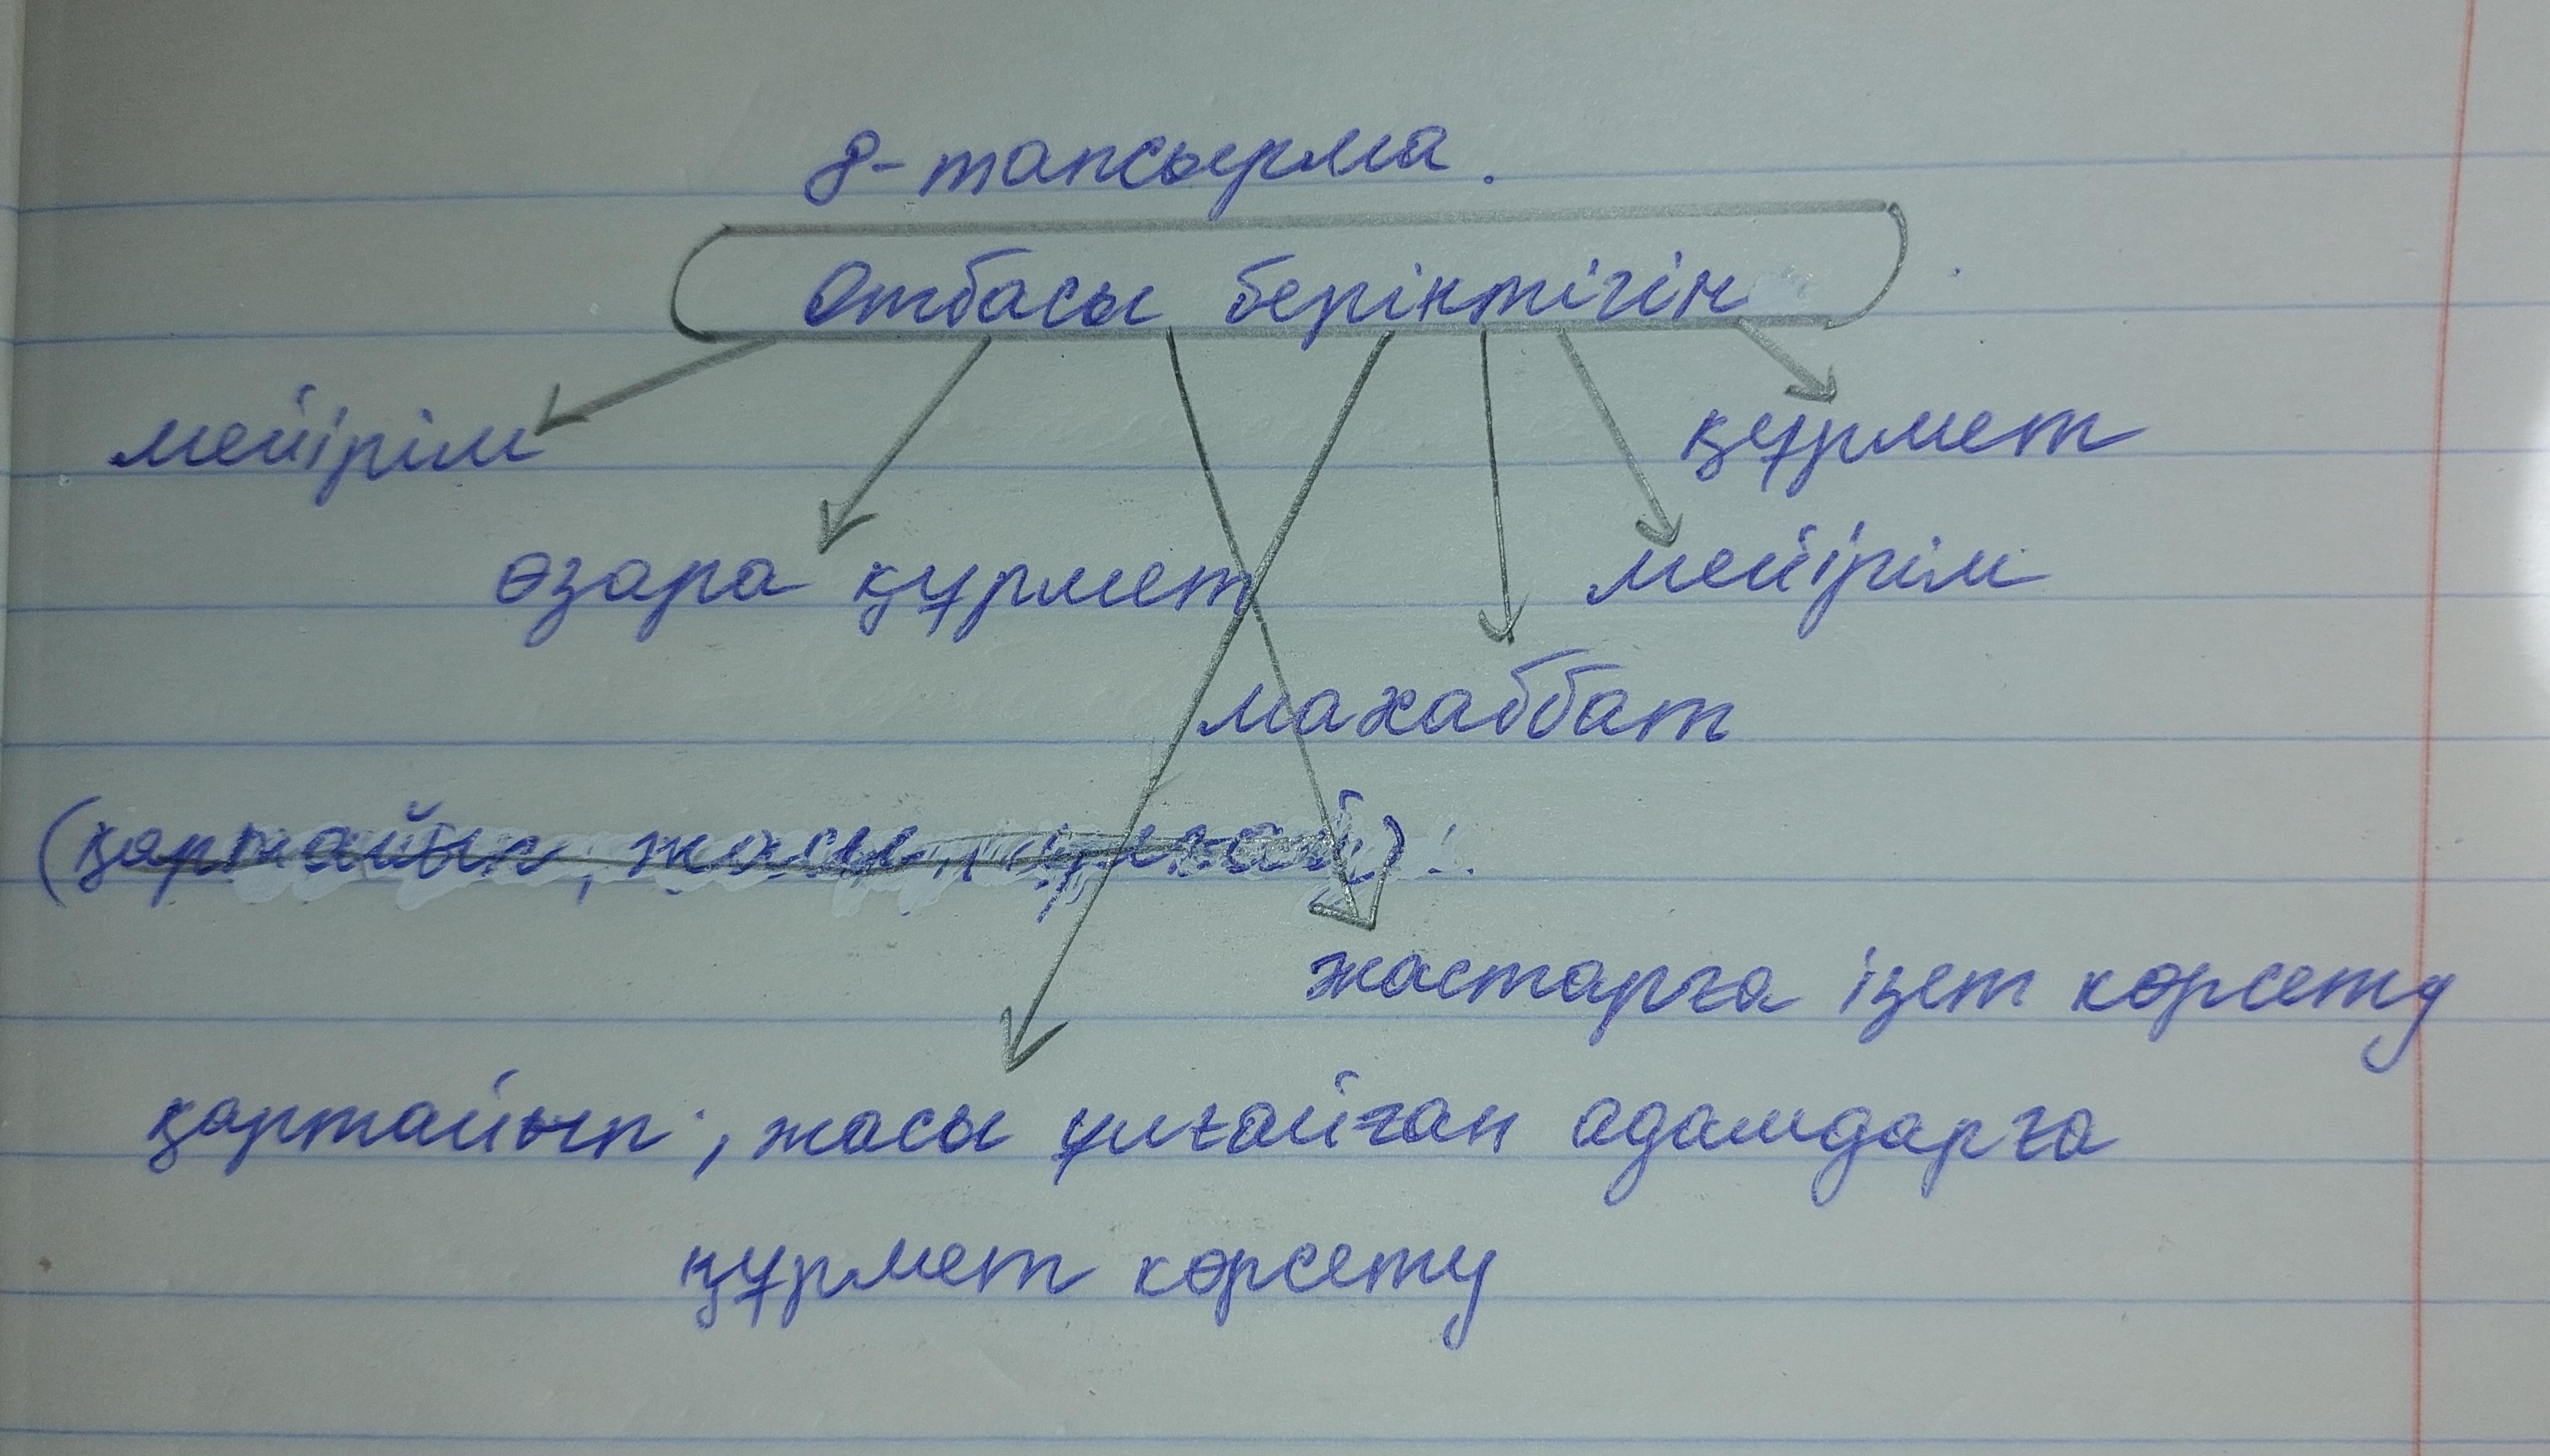 8-тапсырма.
Отбасы беріктігін
мейірім
құрмет
өзара құрмет
мейірім
махаббат
(қартайып, жасы ұлғай)
жастарға ізет көрсету
қартайып, жасы ұлғайған адамдарға
құрмет көрсету